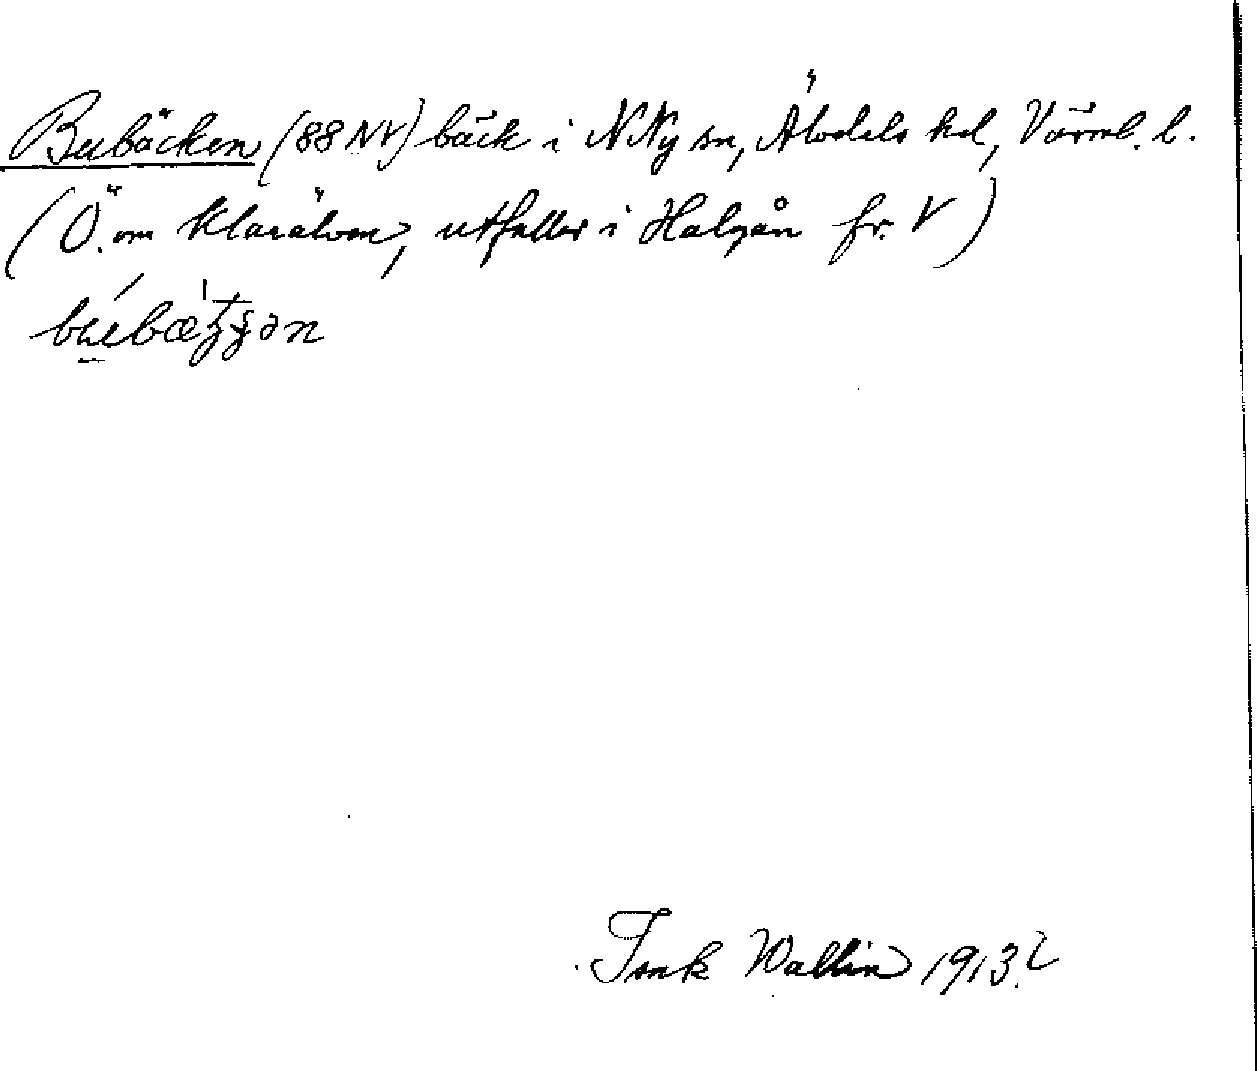 Bubäcken (88 NV) bäck i N Ny sn, Älvdals hd, Värml. l.
(Ö. om Klarälven, utfaller i Halgån fr. V)
Tmk Wallin 1913.